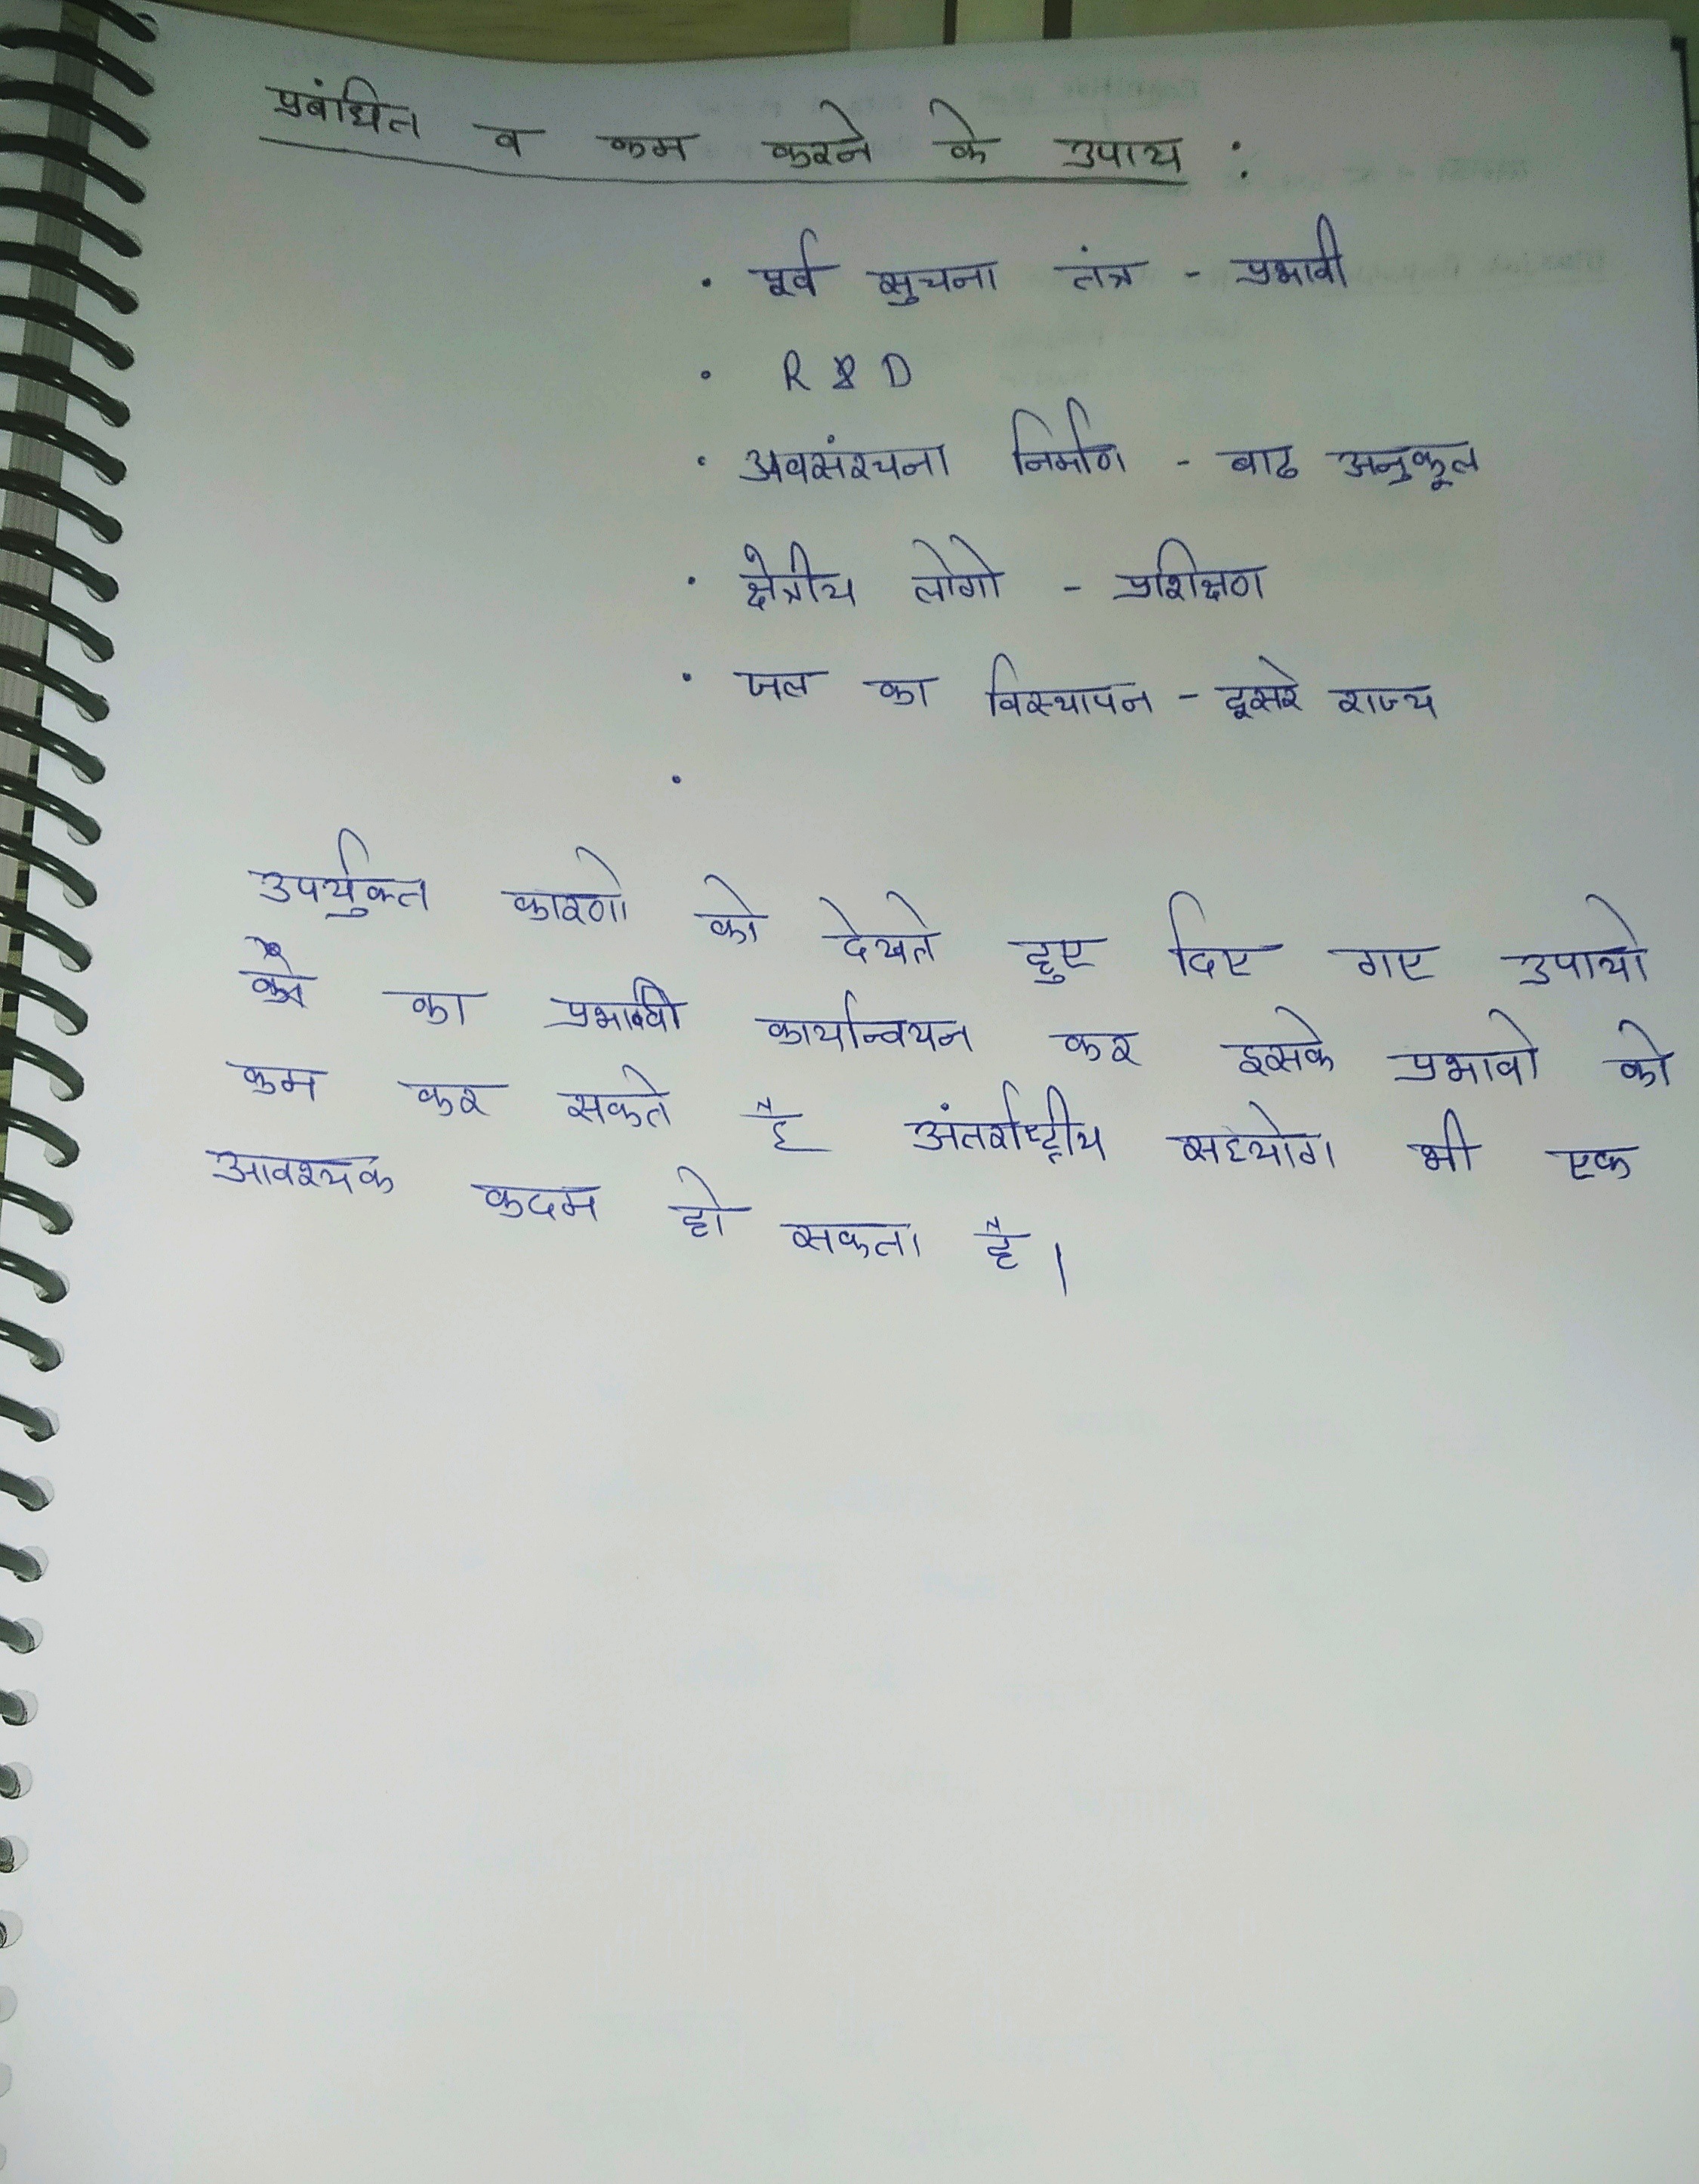 प्रबंधित व कम करने के उपाय :
· पूर्व सुचना तंत्र - प्रभावी
· R & D
· अवसंरचना निर्माण - बाढ अनुकूल
· क्षेत्रीय लोगो - प्रशिक्षण
· जल का विस्थापन - दूसरे राज्य
·
उपर्युक्त कारणो को देखते हुए दिए गए उपायो
का प्रभावी कार्यान्वयन कर इसके प्रभावो को
कम कर सकते है अंतर्राष्ट्रीय सहयोग भी एक
आवश्यक कदम हो सकता है।